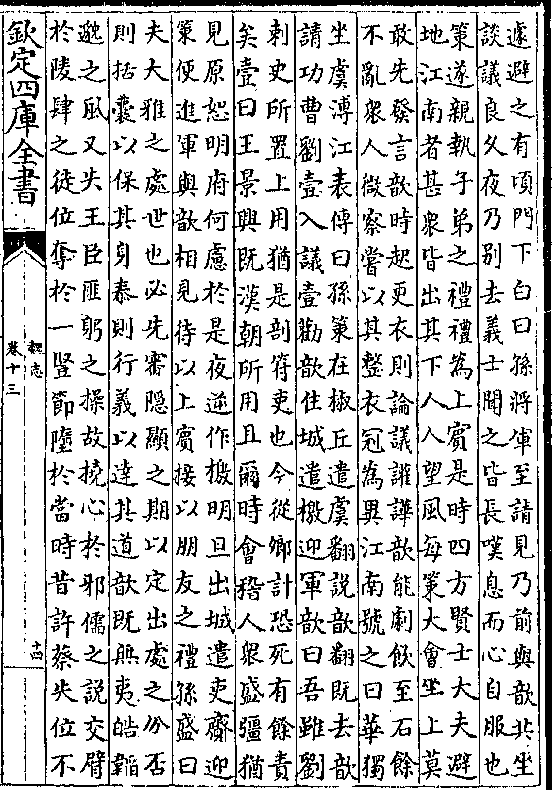 遽避之有頃門下白曰孫將軍至請見乃前與歆共坐
談議良久夜乃别去義士聞之皆長嘆息而心自服也
策遂親執子弟之禮禮為上賓是時四方賢士大夫避
地江南者甚衆皆出其下人人望風每策大會坐上莫
敢先發言歆時起更衣則論議讙譁歆能劇飲至石餘
不亂衆人微察嘗以其整衣冠為異江南號之曰華獨
坐虞溥江表傳曰孫策在椒丘遣虞翻說歆翻既去歆
請功曹劉壹入議壹勸歆住城遣檄迎軍歆曰吾雖劉
刺史所置上用猶是剖符吏也今從卿計恐死有餘責
矣壹曰王景興既漢朝所用且爾時會稽人衆盛彊猶
見原恕明府何慮於是夜逆作檄明旦出城遣吏齎迎
策便進軍與歆相見待以上賓接以朋友之禮孫盛曰
夫大雅之處世也必先審隱顯之期以定出處之分否
則括囊以保其身泰則行義以達其道歆既無夷皓韜
邈之風又失王臣匪躬之操故撓心於邪儒之說交臂
於陵肆之徒位奪於一豎節墮於當時昔許蔡失位不
欽定四庫全書
魏志
卷十三
十四